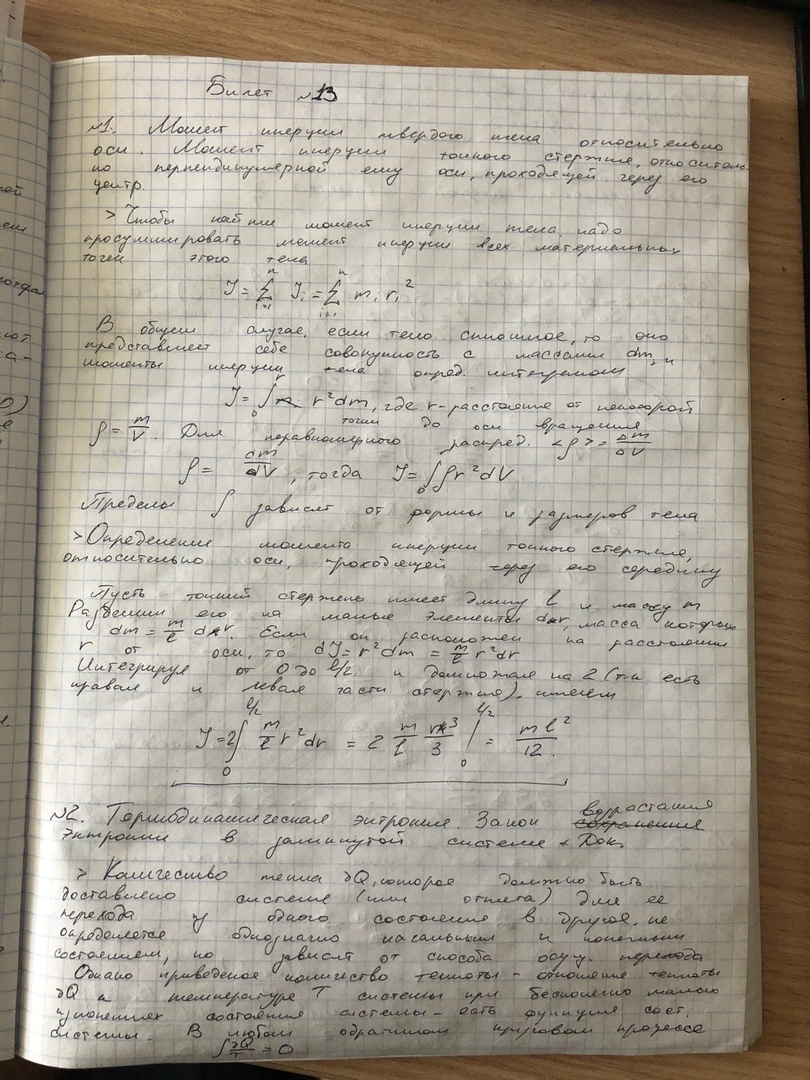 Билет №13
№1. Момент инерции твердого тела относительно
оси. Момент инерции тонкого стержня, относитель-
но перпендикулярной ему оси, проходящей через его
центр.
> Чтобы найти момент инерции тела, надо
просуммировать момент инерции всех материальных
точек этого тела
J = ∑ᵢ₌₁ⁿ Jᵢ = ∑ᵢ₌₁ⁿ mᵢ rᵢ²
В общем случае, если тело сплошное, то оно
представляет себе совокупность с массами dm, и
моменты инерции тела опред. интегралом
J = ∫₀ʳ r²dm, где r - расстояние от некоторой
точки до оси вращения
ρ = m/V. Для неравномерного распред. <ρ> = Δm/ΔV
ρ = dm/dV, тогда J = ∫₀ ρr²dV
Пределы ∫ зависят от формы и размеров тела
> Определение момента инерции тонкого стержня,
относительно оси, проходящей через его середину
Пусть тонкий стержень имеет длину l и массу m
Разбенши его на малые элементы dr, масса которых
dm = m/l dr. Если он расположен на расстоянии
r от оси, то dJ = r²dm = m/l r²dr
Интегрируя от 0 до l/2 и домножая на 2 (т.к есть
правая и левая части стержня), имеем
J = 2∫₀^(l/2) m/l r²dr = 2 m/l r³/3 |₀^(l/2) = ml²/12.
№2. Термодинамическая энтропия. Закон возрастания
энтропии в замкнутой системе + Док.
> Количество тепла ∂Q, которое должно быть
доставлено системе (или отнято) для ее
перехода из одного состояния в другое, не
определяется однозначно начальным и конечным
состоянием, но зависит от способа осущ. перехода
Однако приведеное количество теплоты - отношение теплоты
∂Q к температуре T системы при бесконечно малых
изменениях состояния системы - есть функция сост.
системы. В любом обратимом круговом процессе
∫ ∂Q/T = 0